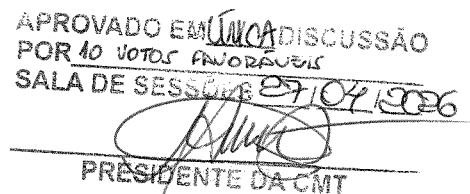 APROVADO EM ÚNICA DISCUSSÃO
POR 10 VOTOS FAVORÁVEIS
SALA DE SESSÕES 27/04/2026
PRESIDENTE DA CMT